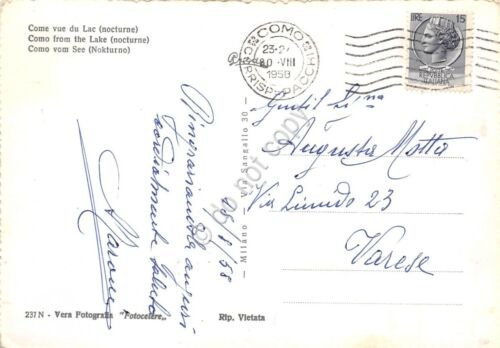 Come vue du Lac (nocturne)
Como from the Lake (nocturne)
Como vom See (Nokturno)
COMO
23-24
20 VIII
1958
CORRISP. PACCHI
LIRE 15
REPVBBLICA
ITALIANA
Ringraziandola auguri
cordialmente saluto
20/8/58
Gentil Sig.na
Augusta Motta
Via 23
Varese
Milano Via Sangallo 30
© do not copy
237 N - Vera Fotografia "Fotocelere"
Rip. Vietata